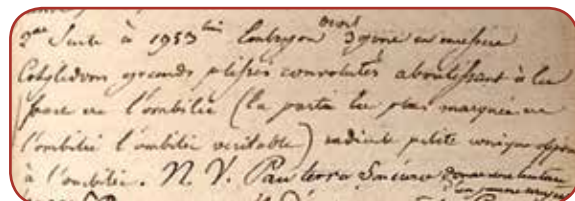 2me Suite à 1953 bis Embryon droit 3gone en massue
Cotylédons grands plissés convolutés aboutissant à la
face ou l'ombilic (la partie la plus marquée ou
l'ombilic l'ombilic véritable) radicule petite conique
à l'ombilic. N. V. Pauterra donne une teinture
en jaune